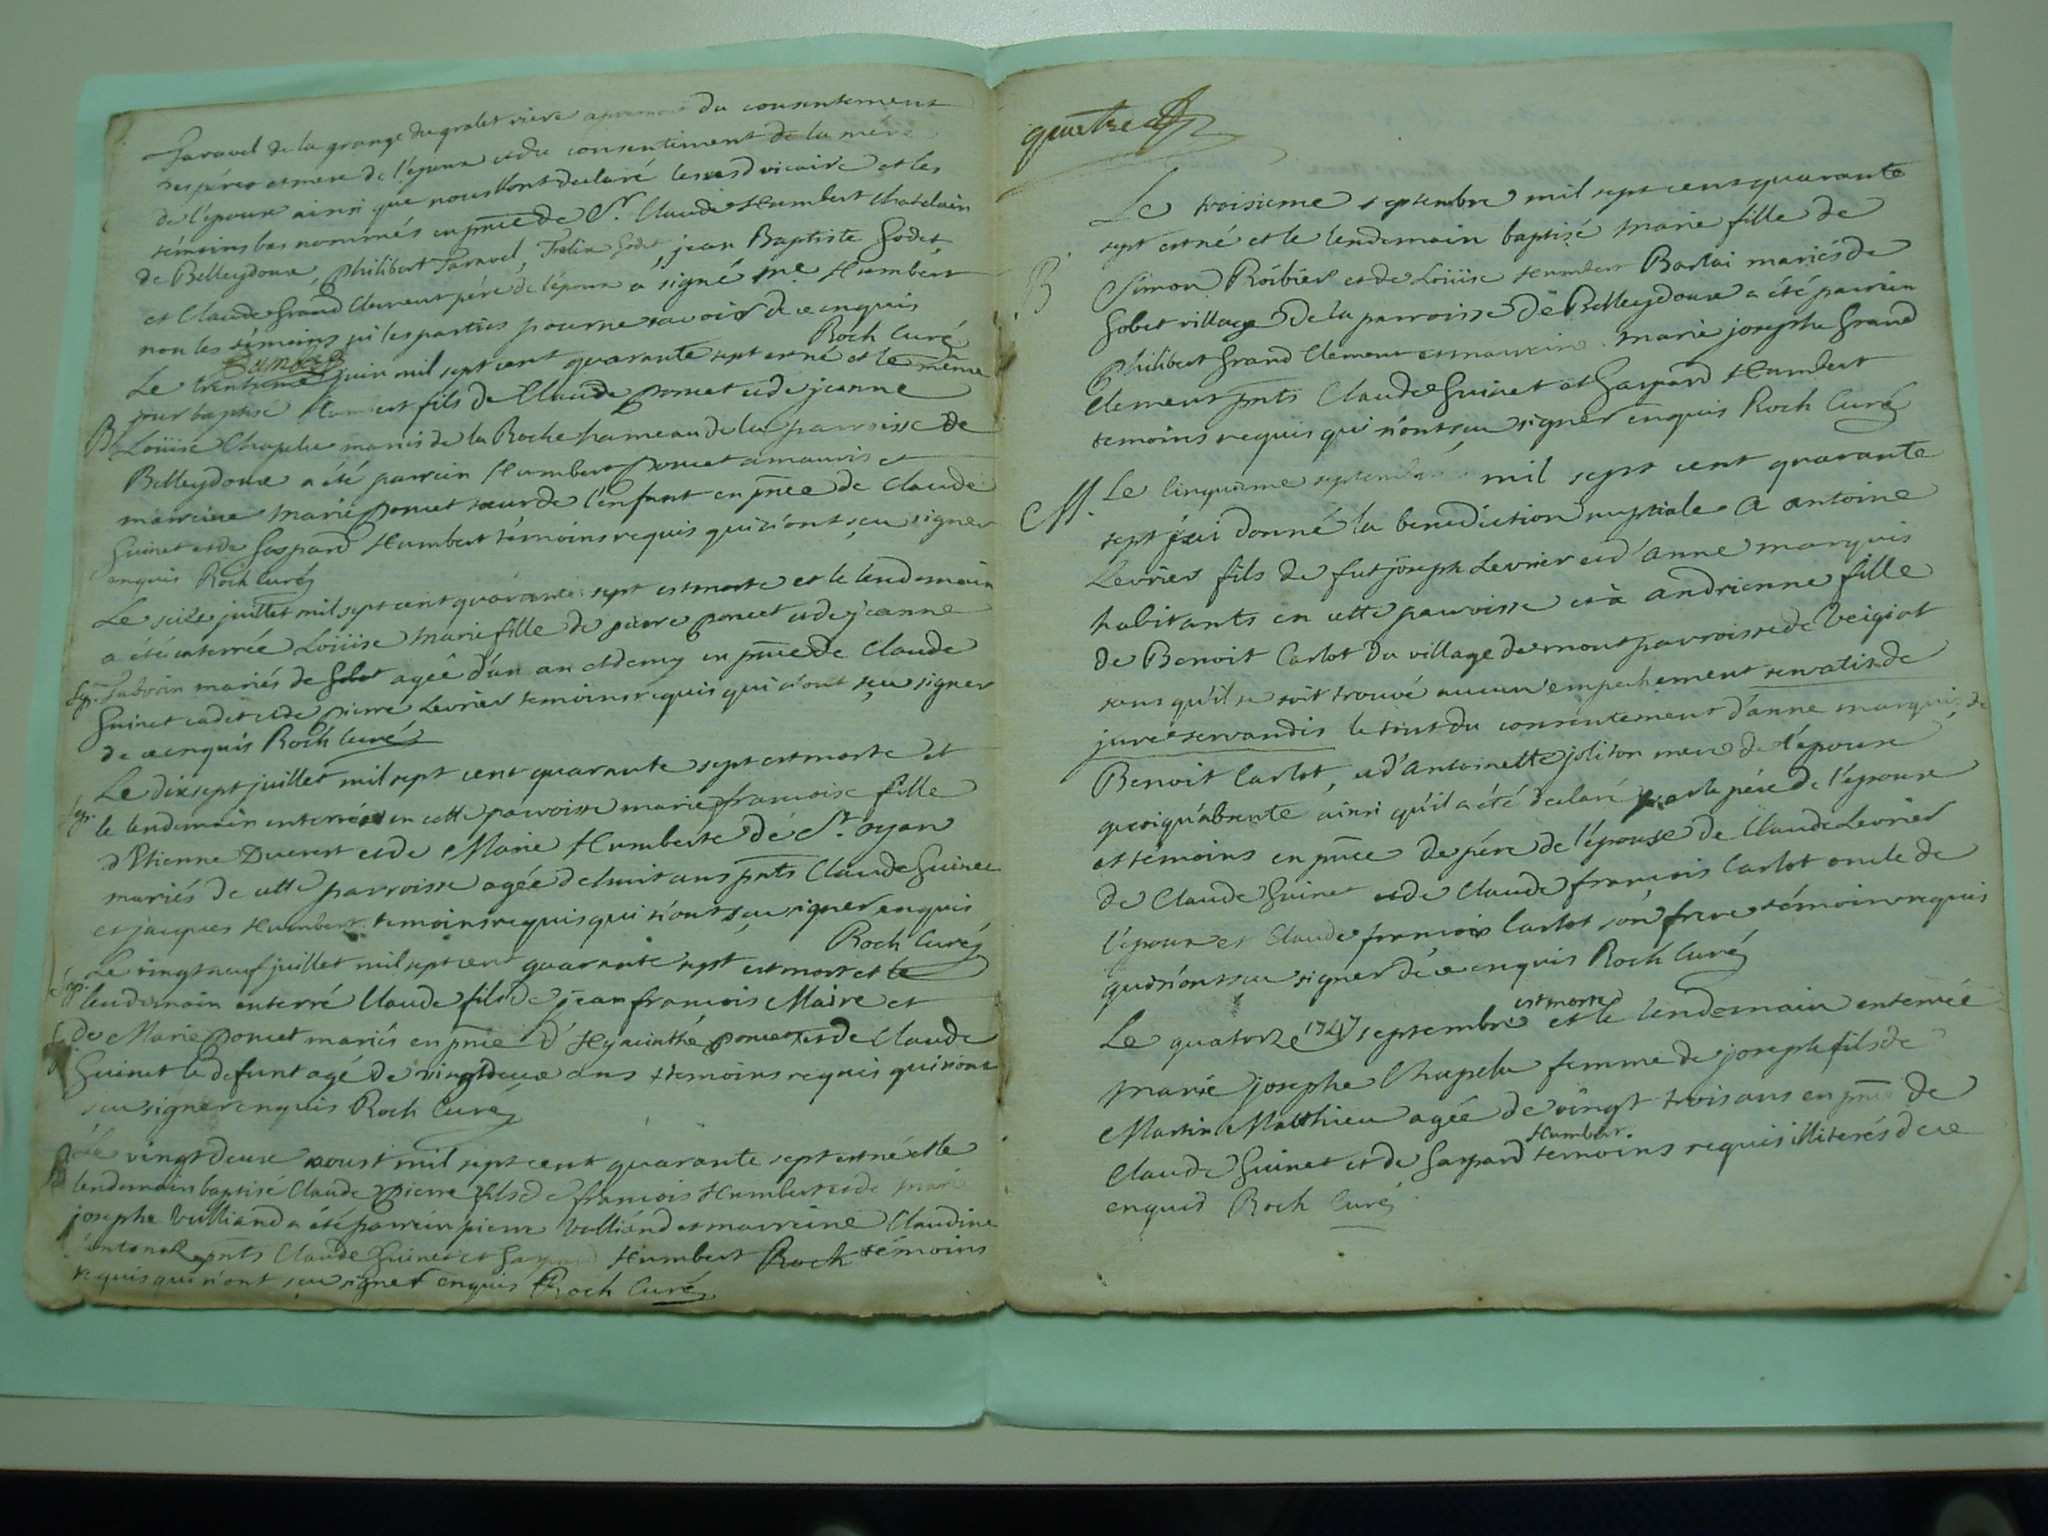 Taravel de la grange du gralet riere du consentement
des pères et mere de l'époux et du consentiment de la mére
de l'épouse ainsi que nous l'ont declaré les vicaire et les
témoins bas nommés en pñce de Sr. Claude Humbert Chatelain
de Belleydoux, Philibert Taravel, jean Baptiste Godet
et Claude Grand Clement pére de l'époux a signé me Humbert
non les témoins ni les parties pour ne savoir de ce enquis
Roch Curé
Le juin mil sept cent quarante sept est né et le même
jour baptisé fils de Claude poncet et de jeanne
B Loüise Chapelu mariés de la Roche hameau de la parroisse de
Belleydoux a été parrein Humbert poncet et
marreine Marie poncet soeur de l'enfant en pñce de Claude
Guinet et de Gaspard Humbert témoins requis qui n'ont sçu signer
enquis Roch Curé
Le seize juillet mil sept cent quarante sept est morte et le lendemain
a été enterrée Loüise Marie fille de pierre poncet et de jeanne
mariés de agée d'un an et demy en pñce de Claude
Guinet cadet et de pierre Levrier temoins requis qui n'ont sçu signer
de ce enquis Roch Curé
Le dix sept juillet mil sept cent quarante sept est morte et
le lendemain enterrée en cette parroisse marie françoise fille
d'Etienne Ducrest et de Marie Humberte de St. oyan
mariés de cette parroisse agée de huit ans pñts Claude Guinet
et jacques Humbert temoins requis qui n'ont sçu signer enquis
Roch Curé
Le vingt neuf juillet mil sept cent quarante sept est mort et le
lendemain enterré Claude fils de jean francois Maire et
de Marie poncet mariés en pñce d'Hyacinthe poncet et de Claude
Guinet le defunt agé de vingt deux ans temoins requis qui n'ont
sçu signer enquis Roch Curé
Le vingt deux aoust mil sept cent quarante sept est né et le
lendemain baptisé Claude pierre fils de francois Humbert et de marie
josephe Vulliand a été parrein pierre Vulliand et marreine Claudine
pñts Claude Guinet et Gaspard Humbert Roch témoins
requis qui n'ont sçu signer enquis Roch Curé
quatre
Le troisieme septembre mil sept cent quarante
sept est né et le lendemain baptisé Marie fille de
B Simon Roibier et de Loüise Humbert Barlai mariés de
Gobet village de la parroisse de Belleydoux a été parrein
Philibert Grand Clement et marreine marie josephe Grand
Clement pñts Claude Guinet et Gaspard Humbert
temoins requis qui n'ont sçu signer enquis Roch Curé
M. Le cinquieme septembre mil sept cent quarante
sept j'ai donné la benediction nuptiale a antoine
Levrier fils de fut joseph Levrier et d'anne marquis
habitants en cette parroisse et à andrienne fille
de Benoit Carlot du village de mont parroisse de Veigiat
sans qu'il se soit trouvé aucun empechement servatis de
jure servandis le tout du consentement d'anne marquis, de
Benoit Carlot, et d'antoinette joliton mere de l'épouse
quoiqu'absente ainsi qu'il a été declaré par le pére de l'épouse
et temoins en pñce de pére de l'épouse de Claude Levrier
de Claude Guinet et de Claude françois Carlot oncle de
l'épouse et Claude francois Carlot son frere témoins requis
qui n'ont sçu signer de ce enquis Roch Curé
est morte
Le quatorze 1747 septembre et le lendemain enterrée
marie josephe Chapelu femme de joseph fils de
Martin Matthieu agée de vingt trois ans en pñce de
Humbert
Claude Guinet et de Gaspard temoins requis illiterés de ce
enquis Roch Curé